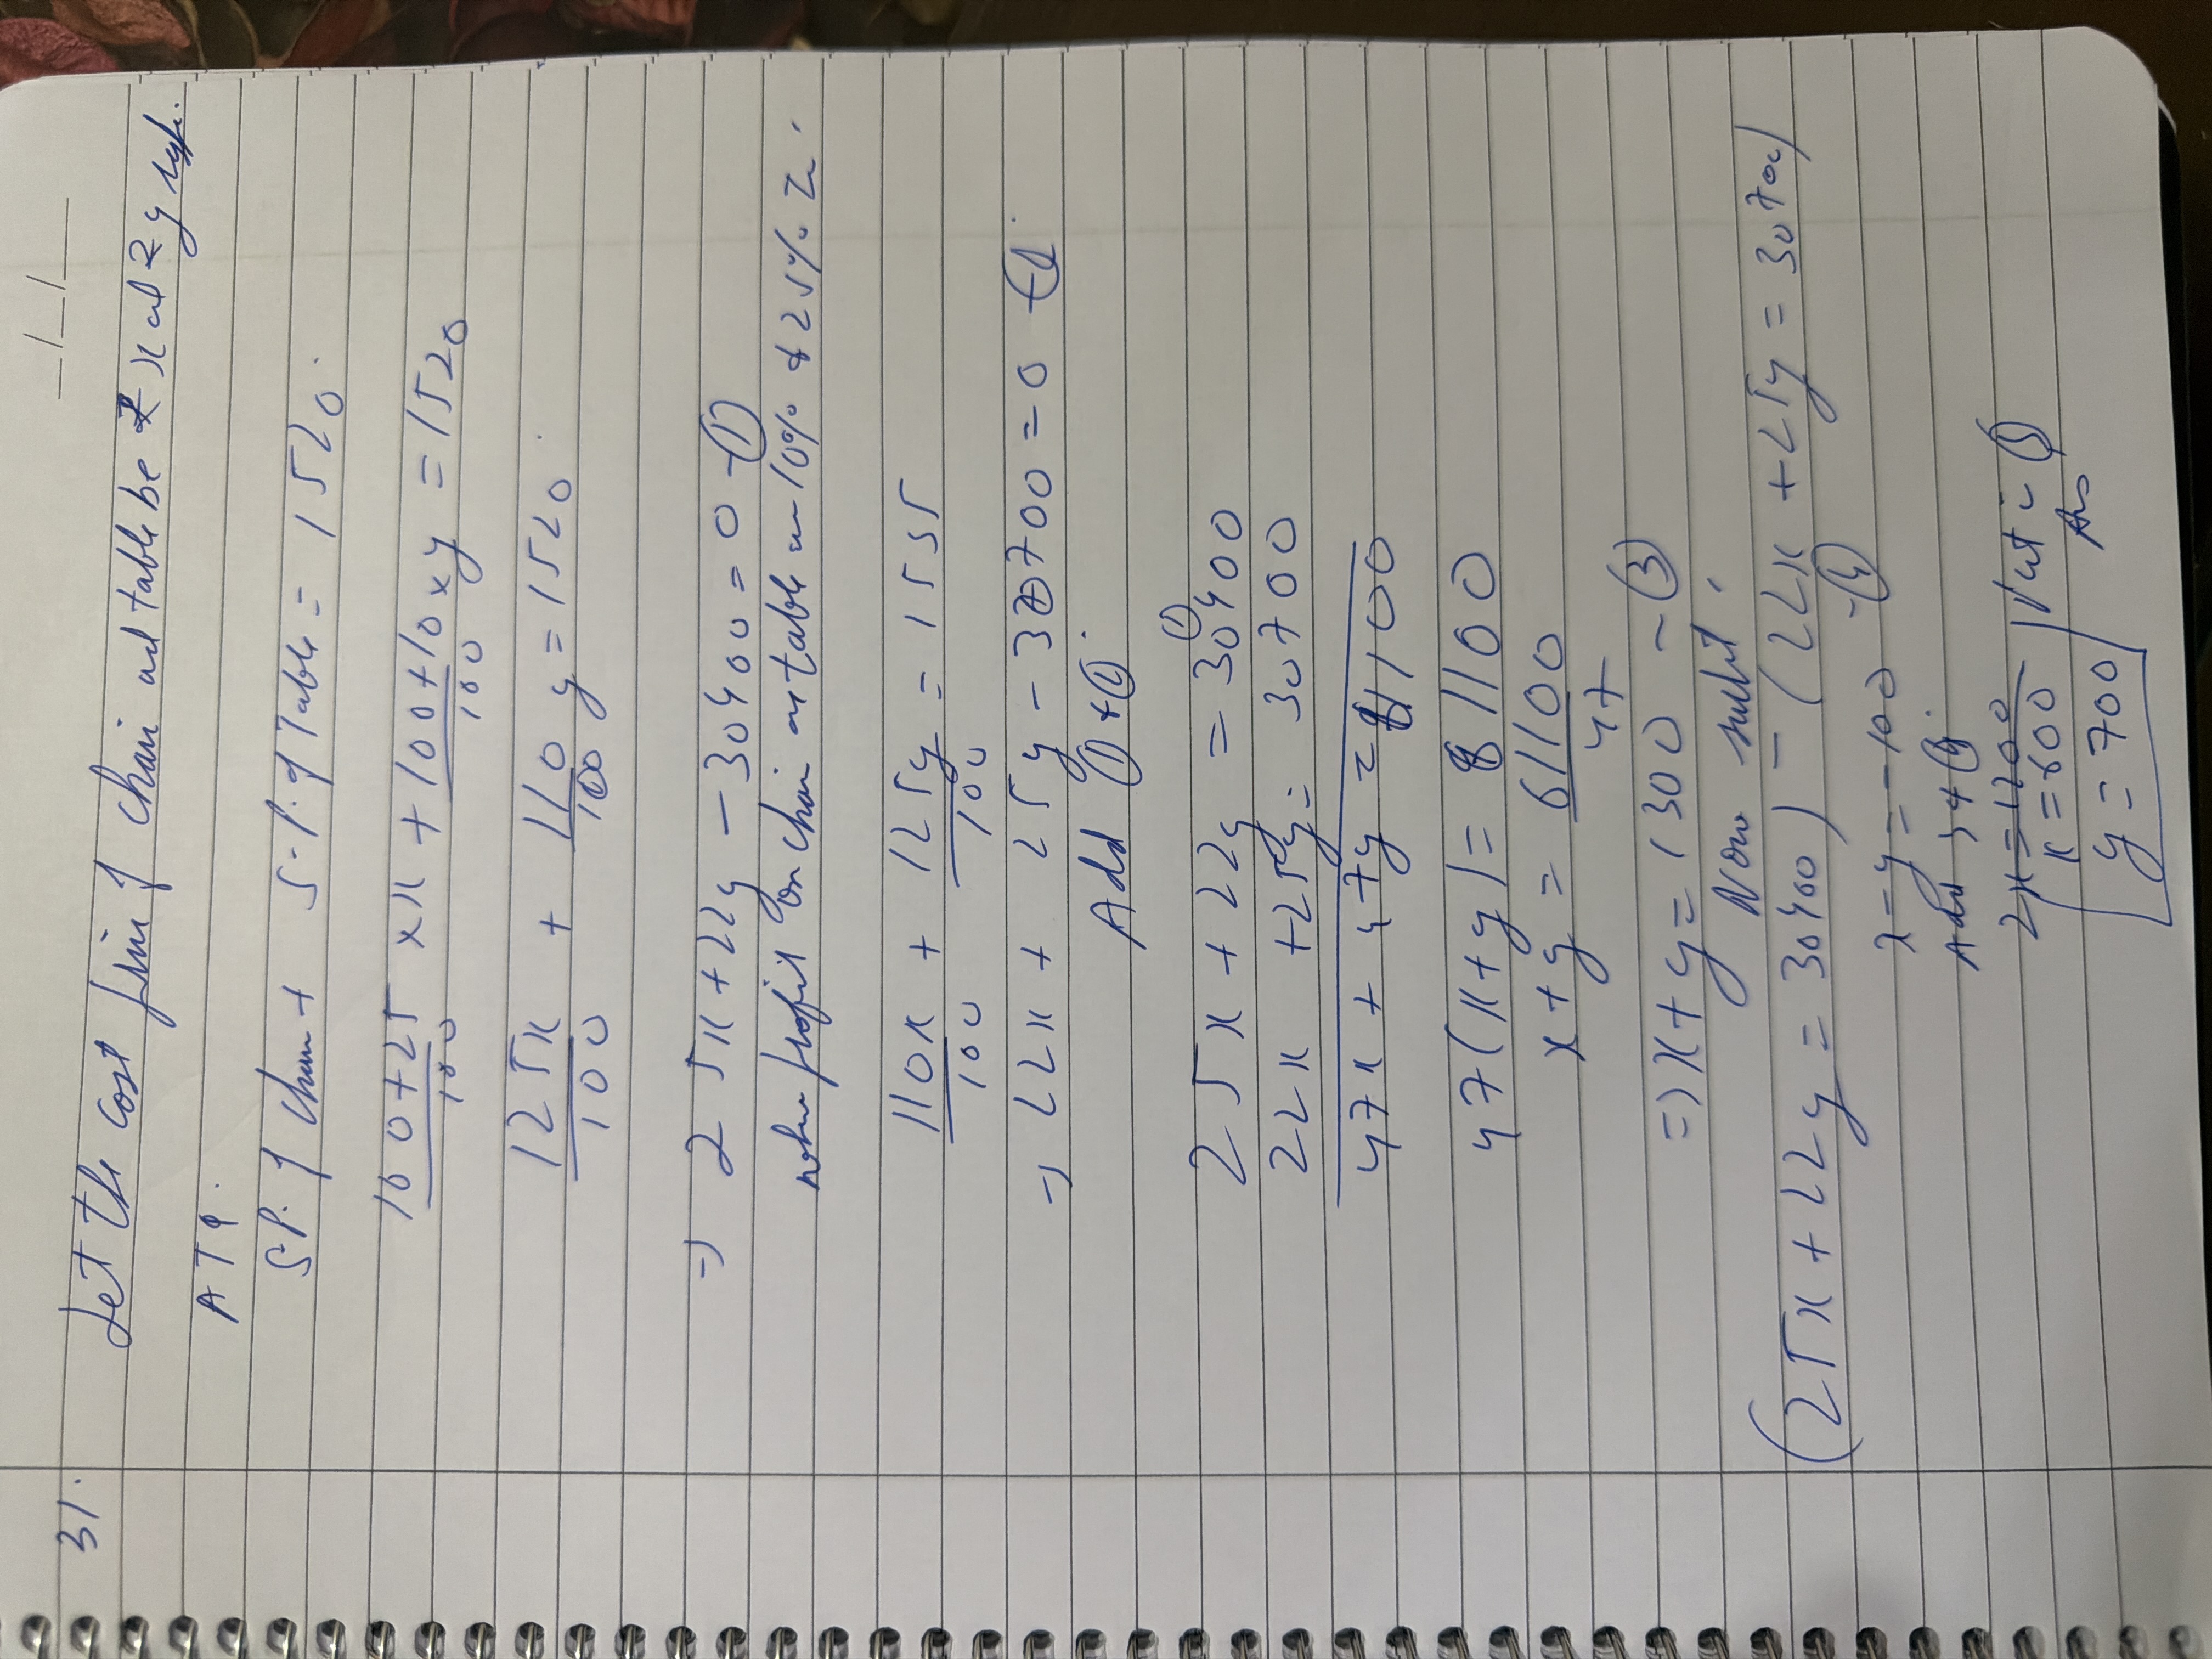 31.
Let the cost price of chair and table be ₹ x and ₹ y resp.
ATQ.
S.P. of chair + S.P. of Table = 1520.
100+25/100 × x + 100+10/100 × y = 1520
125x/100 + 110/100 y = 1520.
=) 25x + 22y - 30400 = 0 -(1)
when profit on chair and table are 10% & 25% is.
110x/100 + 125y/100 = 1535
=) 22x + 25y - 30700 = 0 -(2).
Add (1) + (2).
25x + 22y = 30400
22x + 25y = 30700
47x + 47y = 61100
47(x+y) = 61100
x+y = 61100/47
=) x+y = 1300 -(3)
Now subst.
(25x + 22y = 30400) - (22x + 25y = 30700)
x - y = -100 -(4)
Add 3 + (4).
2x = 1200
x = 600 | Put in (3)
y = 700 Ans